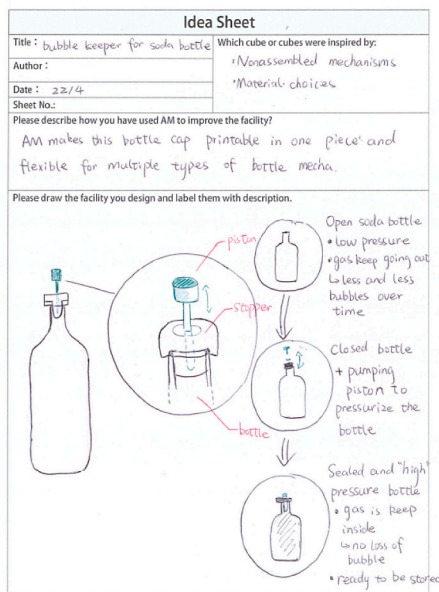 Idea Sheet
Title : bubble keeper for soda bottle
Which cube or cubes were inspired by:
• Nonassembled mechanisms
• Material choices
Author :
Date : 22/4
Sheet No.:
Please describe how you have used AM to improve the facility?
AM makes this bottle cap printable in one piece and
flexible for multiple types of bottle mecha.
Please draw the facility you design and label them with description.
piston
stopper
bottle
Open soda bottle
• low pressure
• gas keep going out
↳ less and less
bubbles over
time
Closed bottle
+ pumping
piston to
pressurize the
bottle
Sealed and "high"
pressure bottle
• gas is keep
inside
↳ no loss of
bubble
• ready to be stored